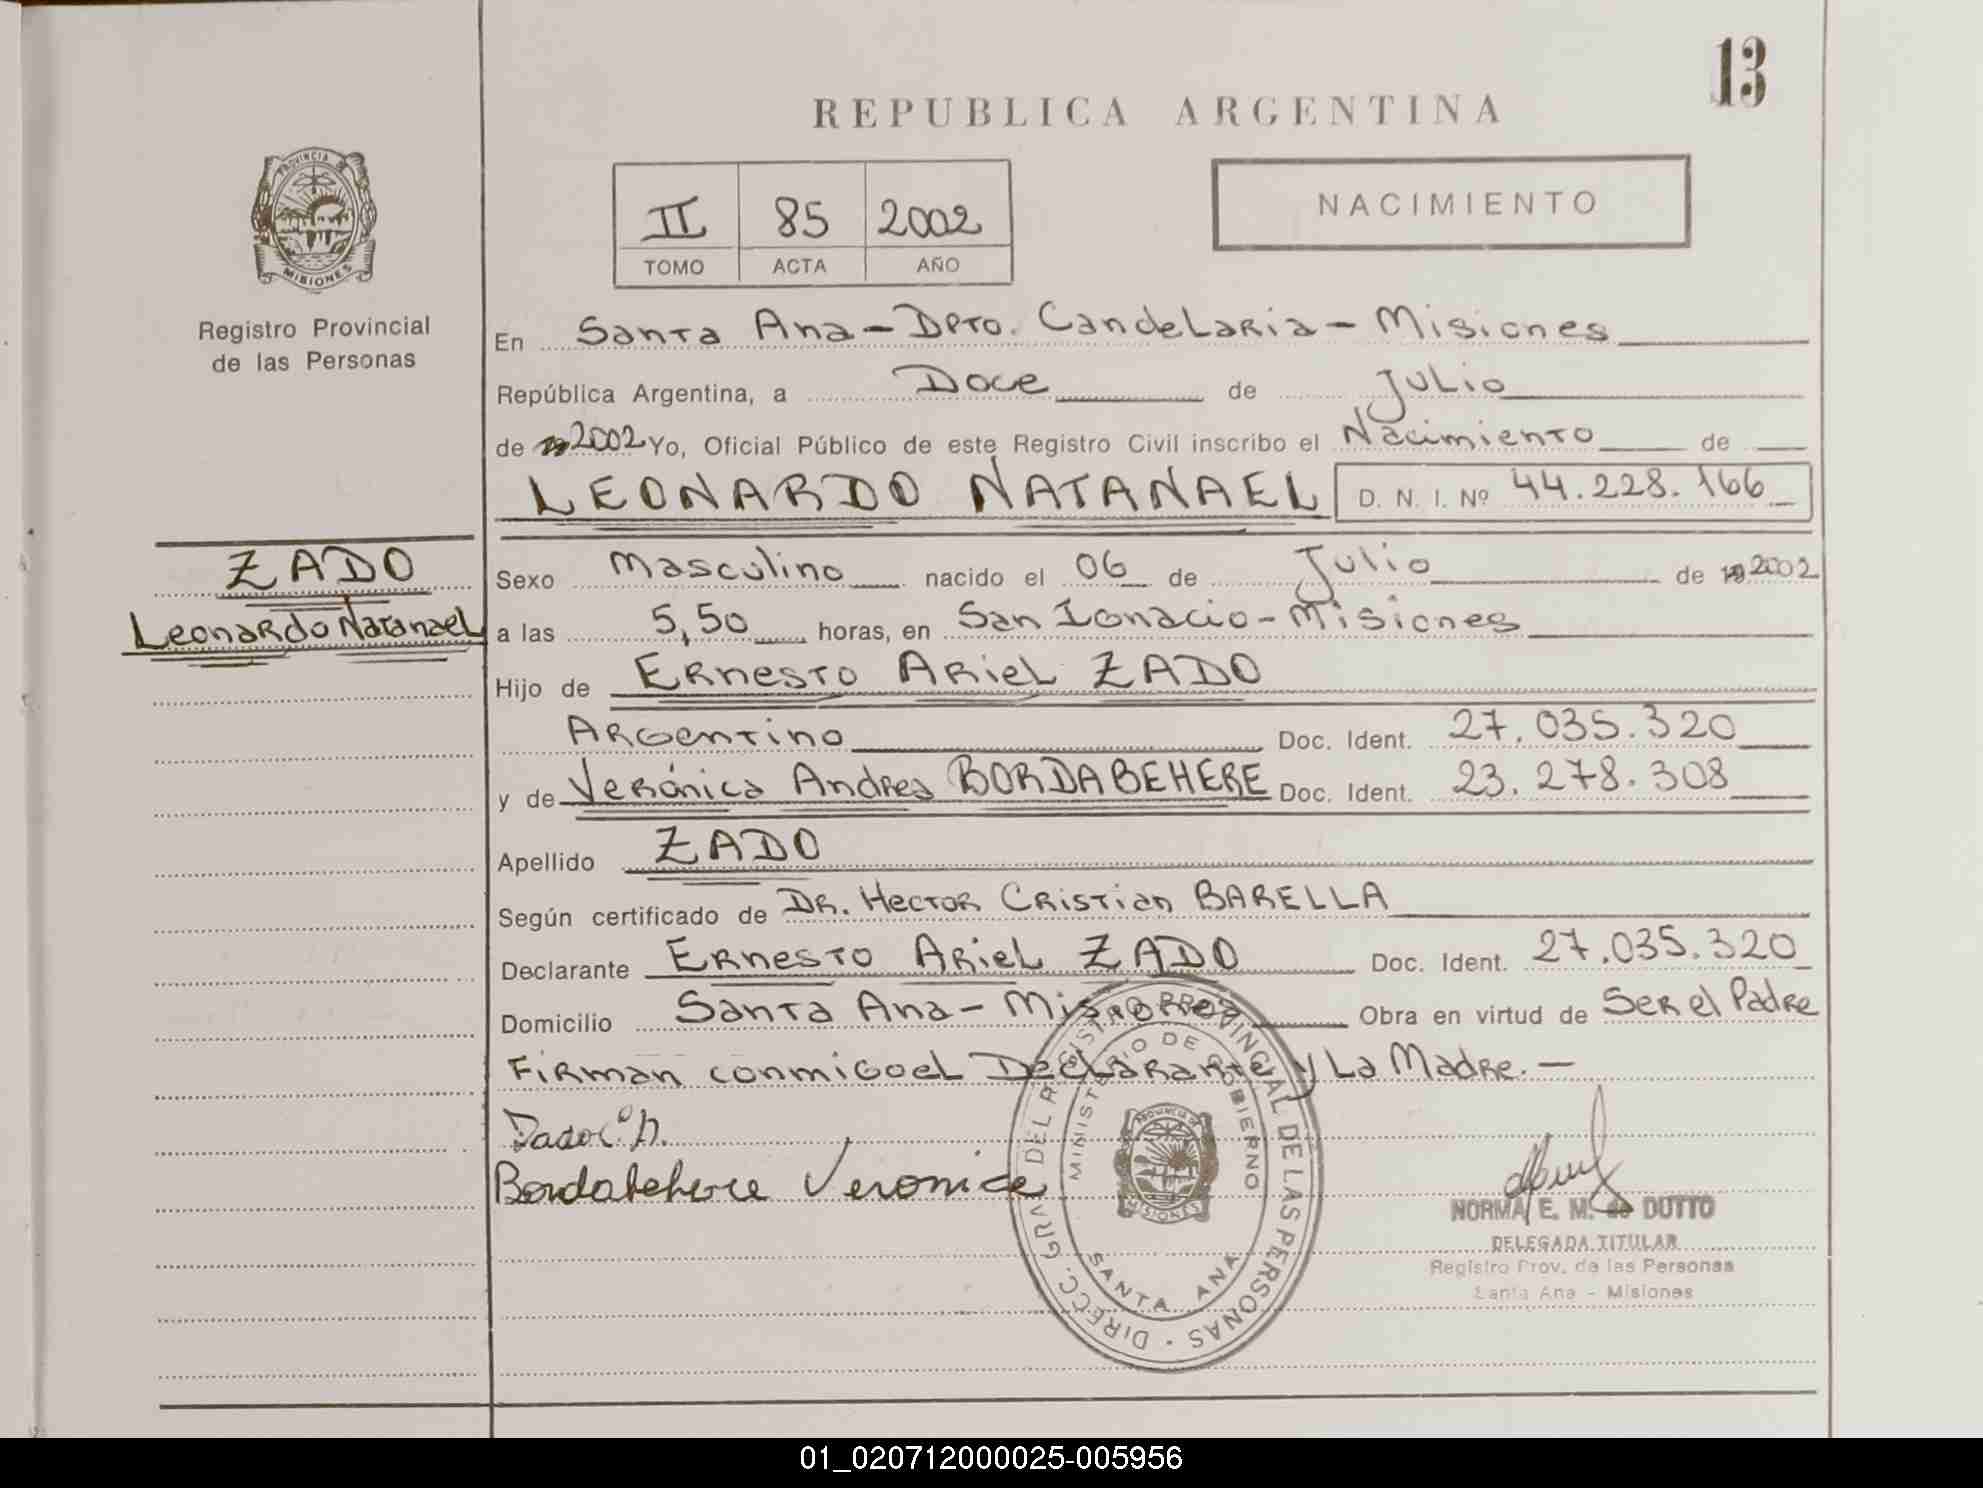 13
REPUBLICA ARGENTINA
PROVINCIA DE
MISIONES
Registro Provincial
de las Personas
II 85 2002
TOMO ACTA AÑO
NACIMIENTO
En Santa Ana - Dpto. Candelaria - Misiones
República Argentina, a Doce de Julio
de 19 2002 Yo, Oficial Público de este Registro Civil inscribo el Nacimiento de
LEONARDO NATANAEL D. N. I. Nº 44.228.166
ZADO
Leonardo Natanael
Sexo Masculino nacido el 06 de Julio de 19 2002
a las 5,50 horas, en San Ignacio - Misiones
Hijo de Ernesto Ariel ZADO
Argentino Doc. Ident. 27.035.320
y de Verónica Andrea BORDABEHERE Doc. Ident. 23.278.308
Apellido ZADO
Según certificado de Dr. Hector Cristian BARELLA
Declarante Ernesto Ariel ZADO Doc. Ident. 27.035.320
Domicilio Santa Ana - Misiones Obra en virtud de Ser el Padre
Firman conmigo el Declarante y La Madre. -
Bordabehere Veronica
DIRECC. GRAL DEL REGISTRO PROVINCIAL DE LAS PERSONAS
MINISTERIO DE GOBIERNO
PROVINCIA DE
MISIONES
SANTA ANA
NORMA E. M. de DUTTO
DELEGADA TITULAR
Registro Prov. de las Personas
Santa Ana - Misiones
01_020712000025-005956